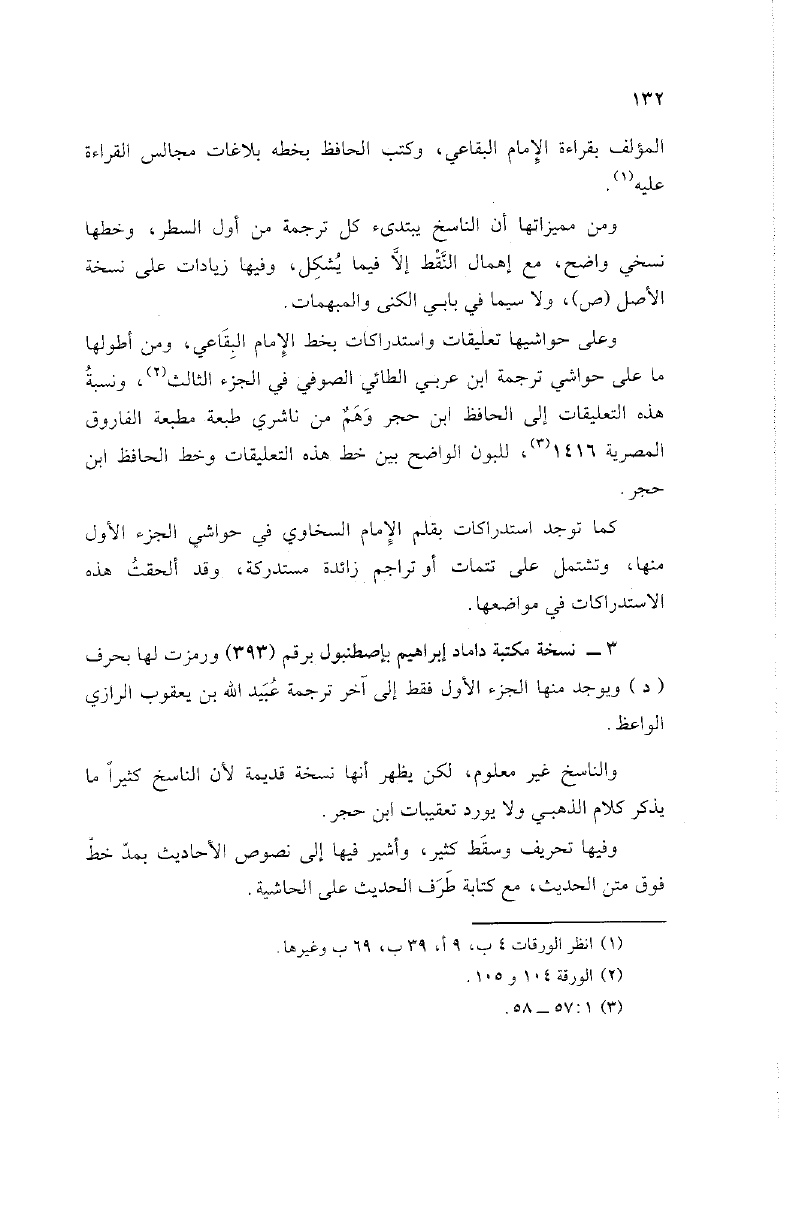 ١٣٢
المؤلف بقراءة الإمام البقاعي، وكتب الحافظ بخطه بلاغات مجالس القراءة
عليه(١).
ومن مميزاتها أن الناسخ يبتدىء كل ترجمة من أول السطر، وخطها
نسخي واضح، مع إهمال النَّقْط إلاَّ فيما يُشكِل، وفيها زيادات على نسخة
الأصل (ص)، ولا سيما في بابي الكنى والمبهمات.
وعلى حواشيها تعليقات واستدراكات بخط الإمام البِقَاعي، ومن أطولها
ما على حواشي ترجمة ابن عربي الطائي الصوفي في الجزء الثالث(٢)، ونسبةُ
هذه التعليقات إلى الحافظ ابن حجر وَهَمٌ من ناشري طبعة مطبعة الفاروق
المصرية ١٤١٦(٣)، للبون الواضح بين خط هذه التعليقات وخط الحافظ ابن
حجر.
كما توجد استدراكات بقلم الإمام السخاوي في حواشي الجزء الأول
منها، وتشتمل على تتمات أو تراجم زائدة مستدركة، وقد ألحقتُ هذه
الاستدراكات في مواضعها.
٣ ـ نسخة مكتبة داماد إبراهيم بإصطنبول برقم (٣٩٣) ورمزت لها بحرف
(د) ويوجد منها الجزء الأول فقط إلى آخر ترجمة عُبَيد الله بن يعقوب الرازي
الواعظ.
والناسخ غير معلوم، لكن يظهر أنها نسخة قديمة لأن الناسخ كثيراً ما
يذكر كلام الذهبي ولا يورد تعقيبات ابن حجر.
وفيها تحريف وسقَط كثير، وأشير فيها إلى نصوص الأحاديث بمدّ خطّ
فوق متن الحديث، مع كتابة طَرَف الحديث على الحاشية.
(١) انظر الورقات ٤ ب، ٩ أ، ٣٩ ب، ٦٩ ب وغيرها.
(٢) الورقة ١٠٤ و ١٠٥.
(٣) ١: ٥٧ ـ ٥٨.